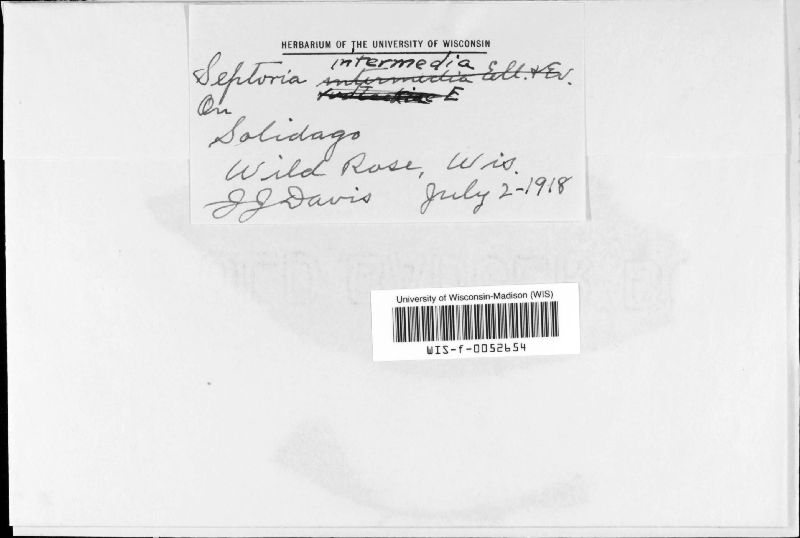 HERBARIUM OF THE UNIVERSITY OF WISCONSIN
intermedia
Septoria intermedia Ell. & Ev.
rudbeckiae E
On
Solidago
Wild Rose, Wis.
JJ Davis July 2-1918
University of Wisconsin-Madison (WIS)
WIS-f-0052654